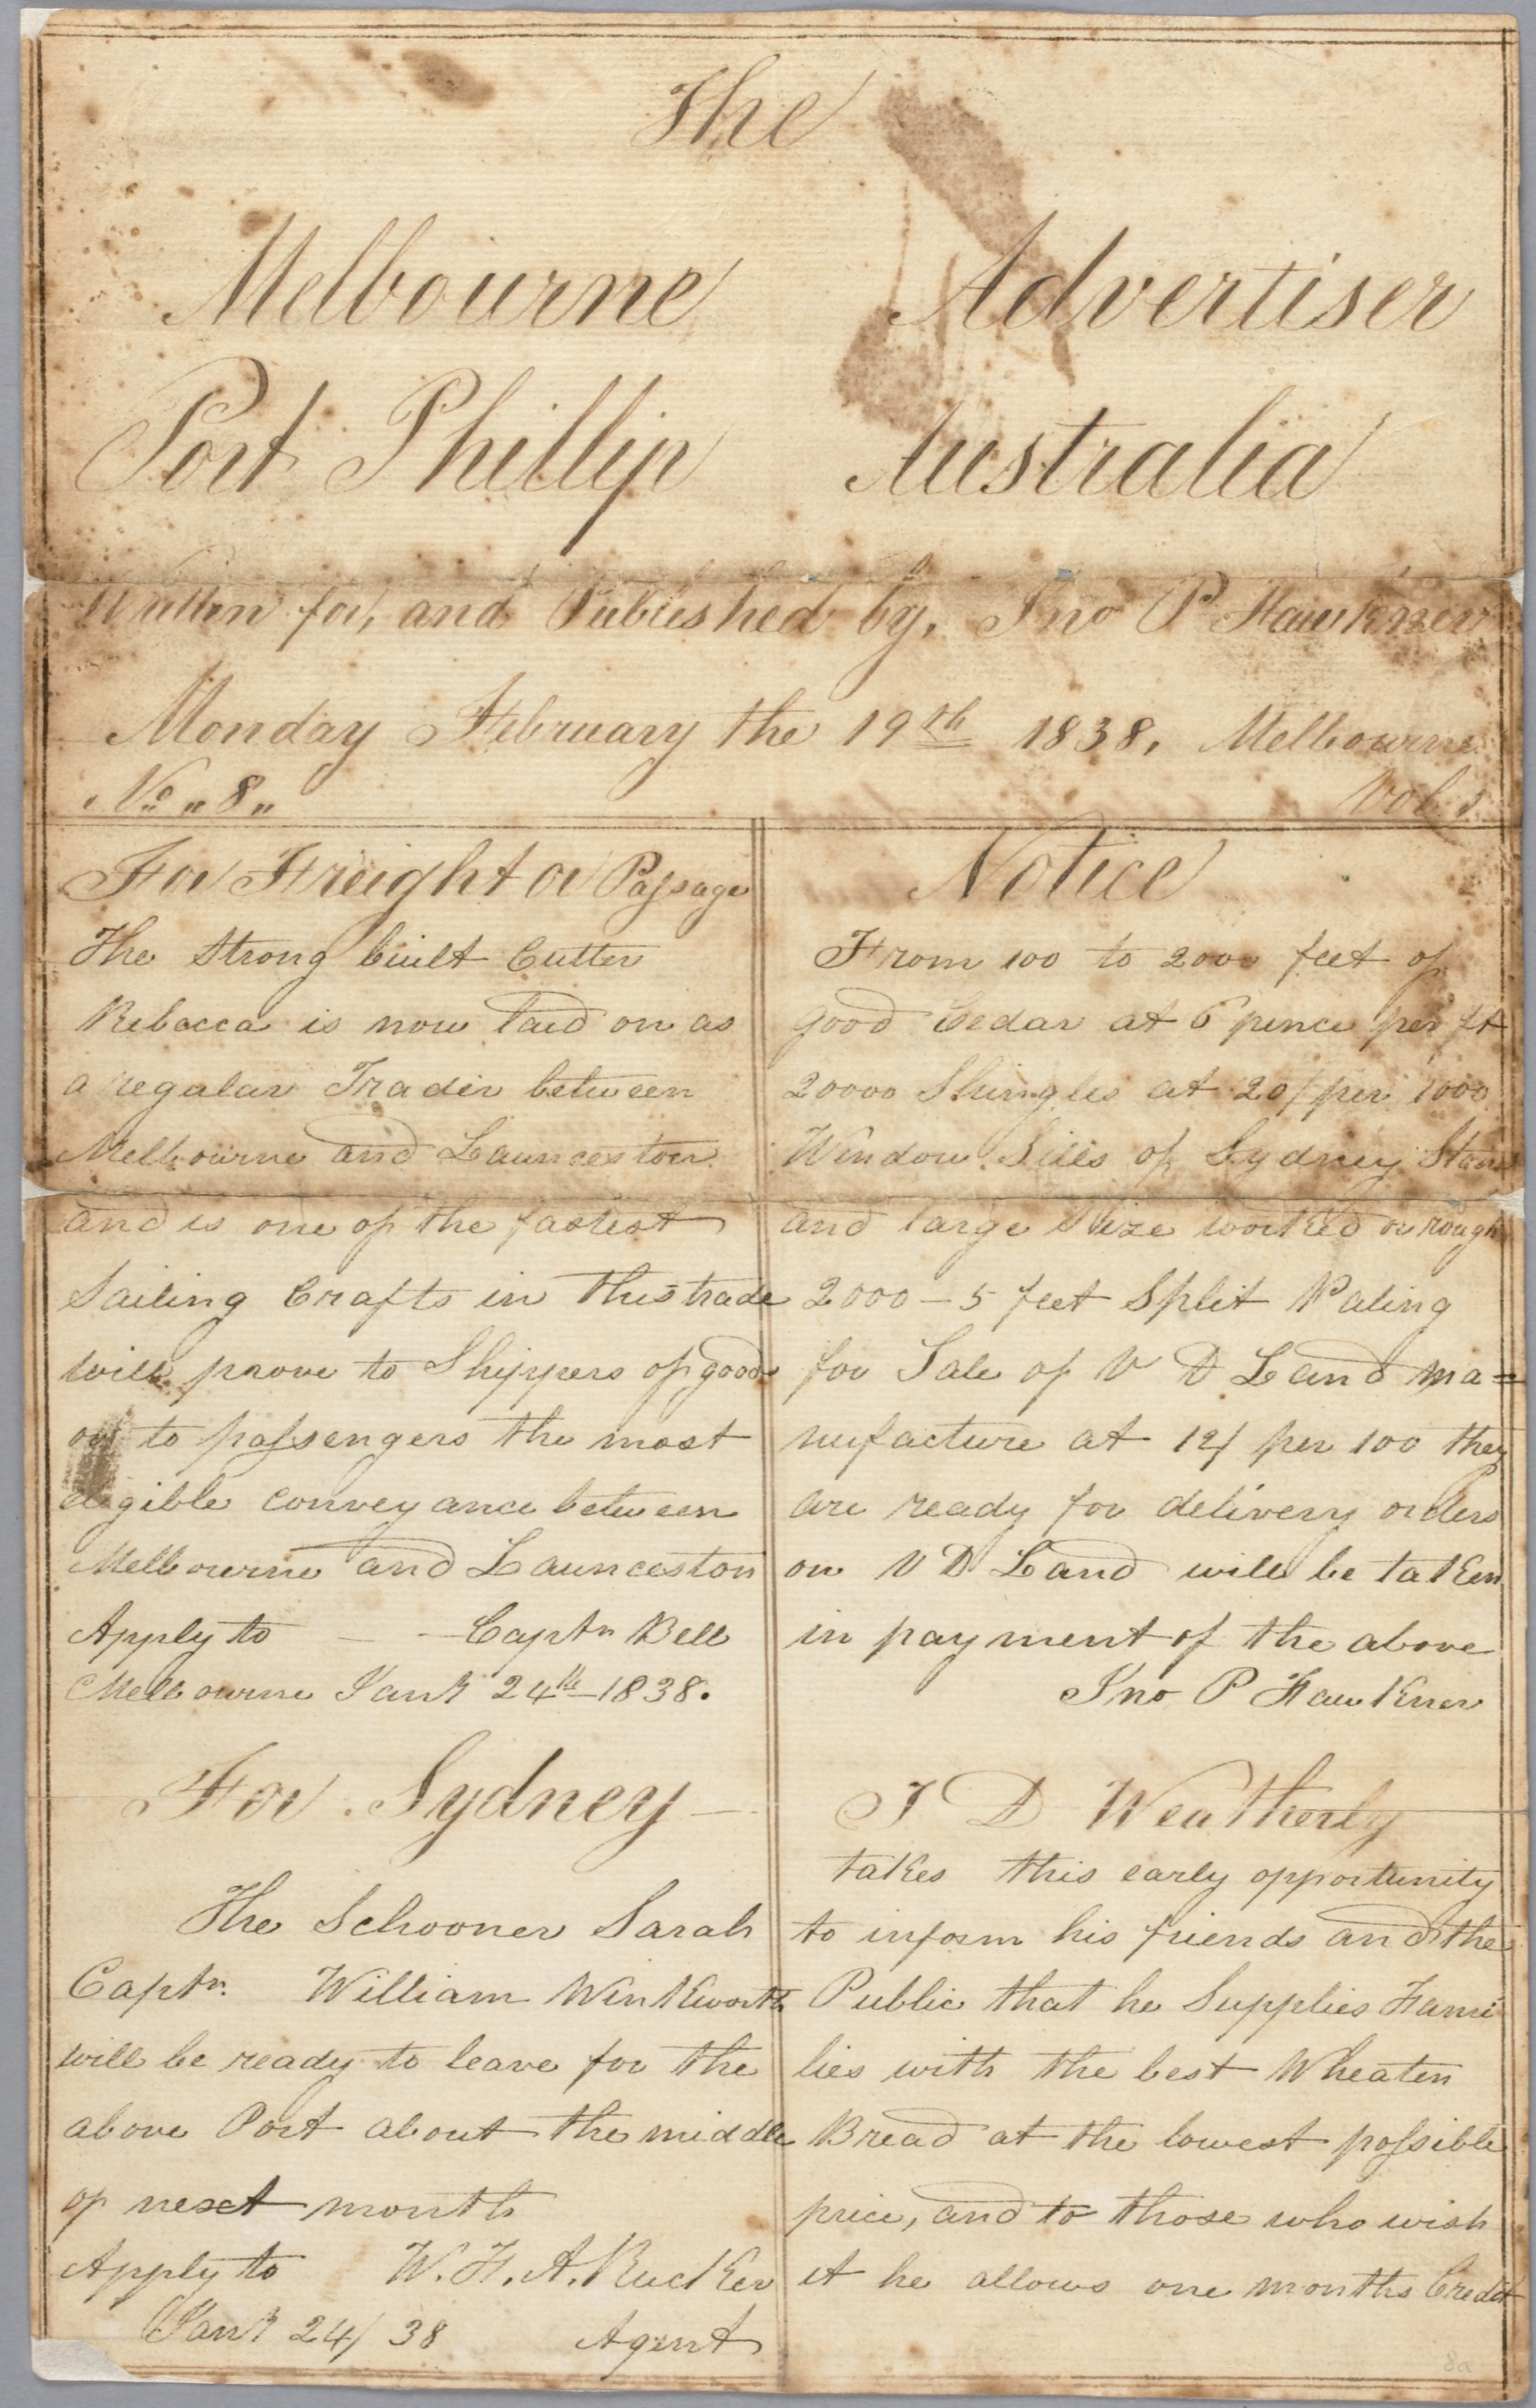 The
Melbourne Advertiser
Port Phillip Australia
Written for, and Published by, Jno P Fawkner
Monday February the 19th 1838, Melbourne
No „8„ Vol. 1
For Freight or Passage
The Strong built Cutter
Rebecca is now laid on as
a regular Trader between
Melbourne and Launceston
and is one of the fastest
Sailing Crafts in this trade
will prove to Shippers of goods
or to passengers the most
elegible conveyance between
Melbourne and Launceston
Apply to — — Captn Bell
Melbourne Jany 24th 1838.
For Sydney
The Schooner Sarah
Captn. William Winkworth
will be ready to leave for the
above Port about the middle
of next month
Apply to W. F. A. Rucker
Jany 24/38 Agent
Notice
From 100 to 2000 feet of
good Cedar at 6 pence per ft
20000 Shingles at 20/ per 1000
Window Sills of Sydney Stone
and large Size worked or rough
2000 – 5 feet Split Paling
for Sale of V D Land ma=
nufacture at 12/ per 100 they
are ready for delivery orders
on V D Land will be taken
in payment of the above
Jno P Fawkner
J D Weatherly
takes this early opportunity
to inform his friends and the
Public that he Supplies Fami
lies with the best Wheaten
Bread at the lowest possible
price, and to those who wish
it he allows one months Credit
8a